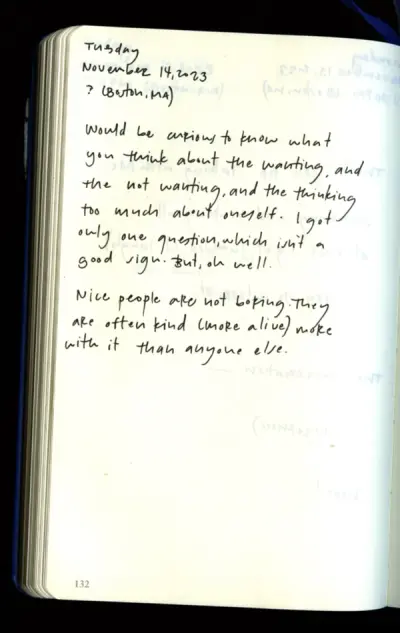 Tuesday
November 14, 2023
? (Boston, MA)
Would be curious to know what
you think about the wanting, and
the not wanting, and the thinking
too much about oneself. I got
only one question, which isn't a
good sign. But, oh well.
Nice people are not boring. They
are often kind (more alive) more
with it than anyone else.
132